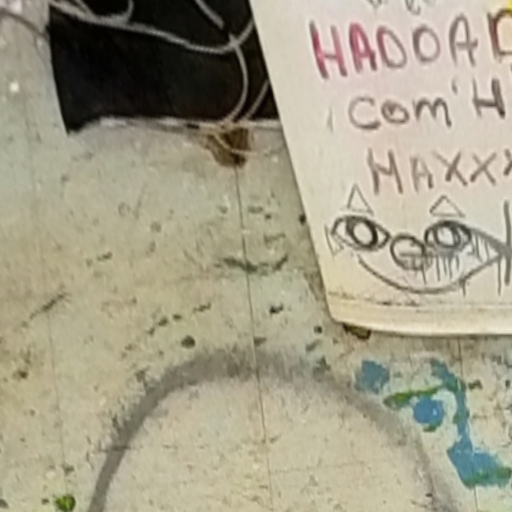 HADOAD
com'H
MAXXX